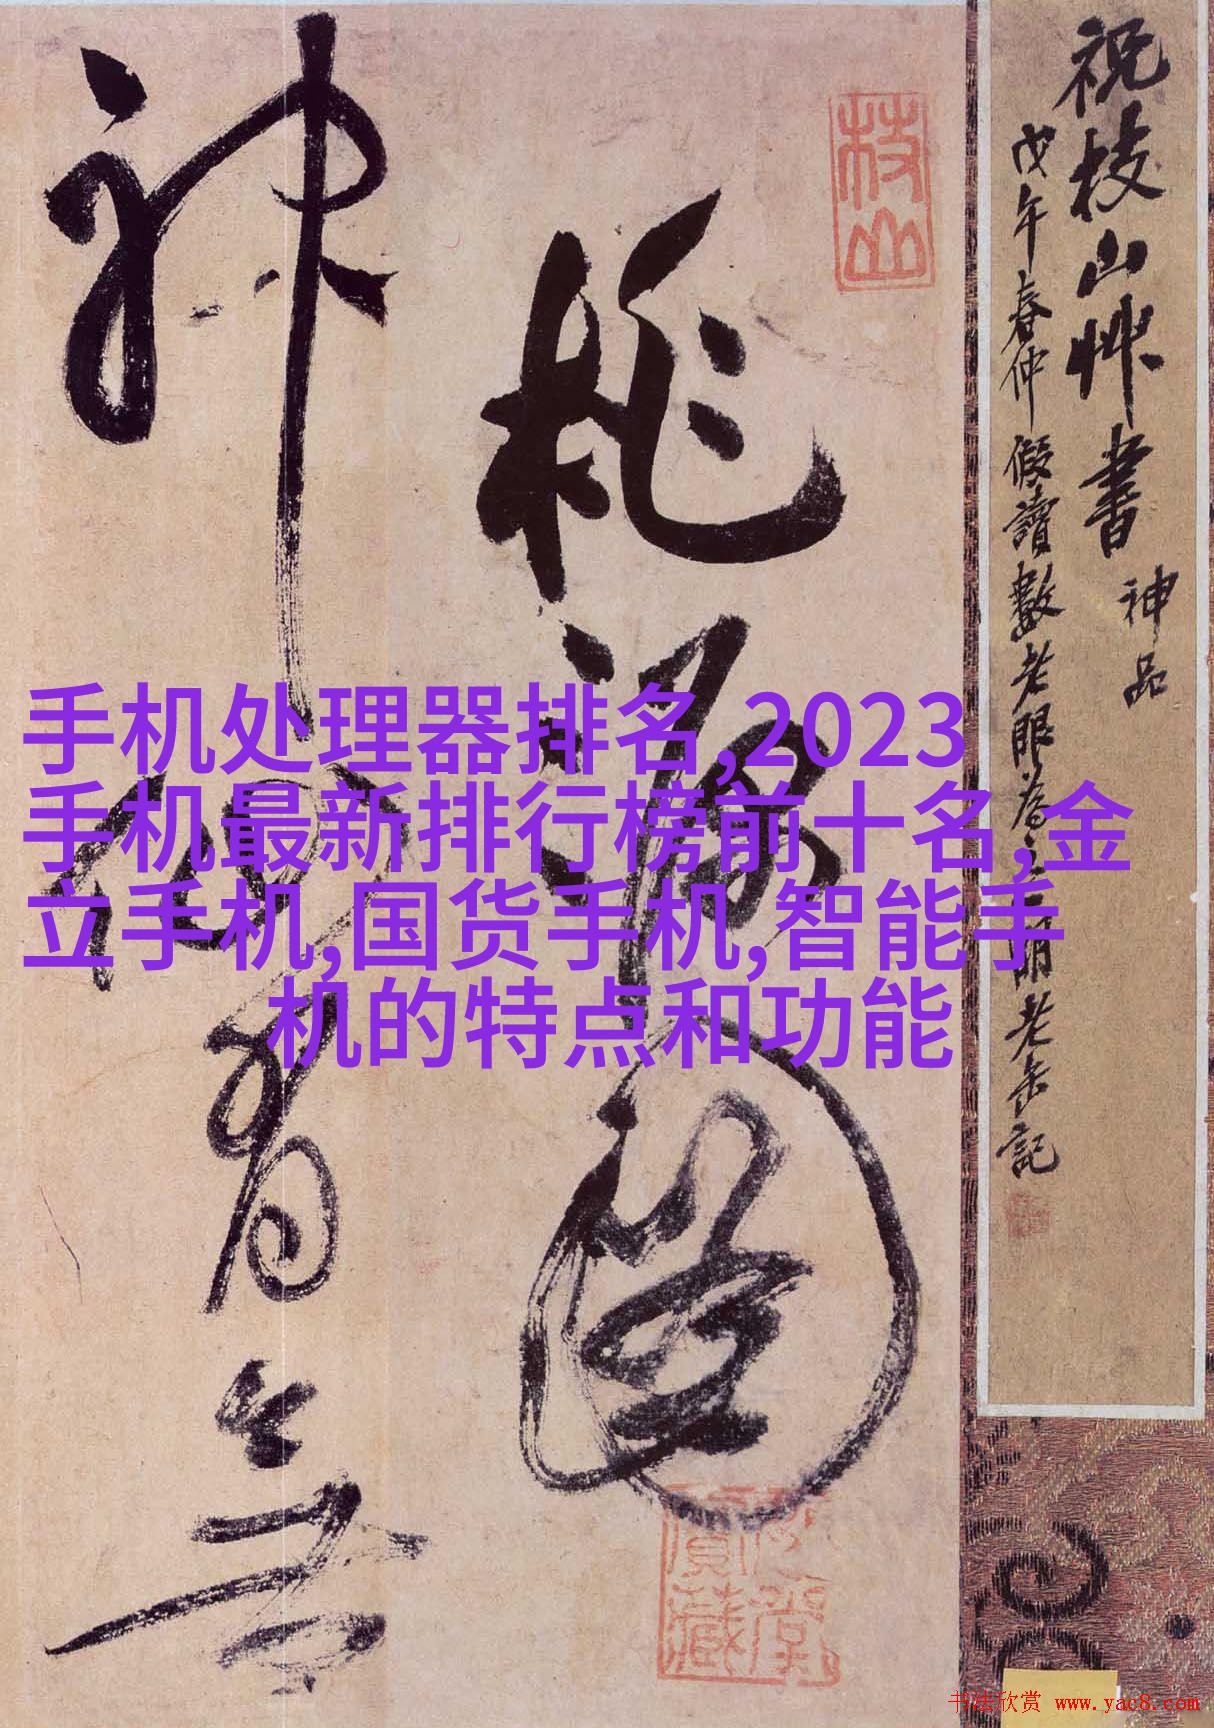 祝枝山艸書
神品
戊午春仲假讀數老眼為之一明老缶記
枝山
桃源圖
神仙有無
手机处理器排名,2023
手机最新排行榜前十名,金
立手机,国货手机,智能手
机的特点和功能
书法欣赏 www.yac8.com